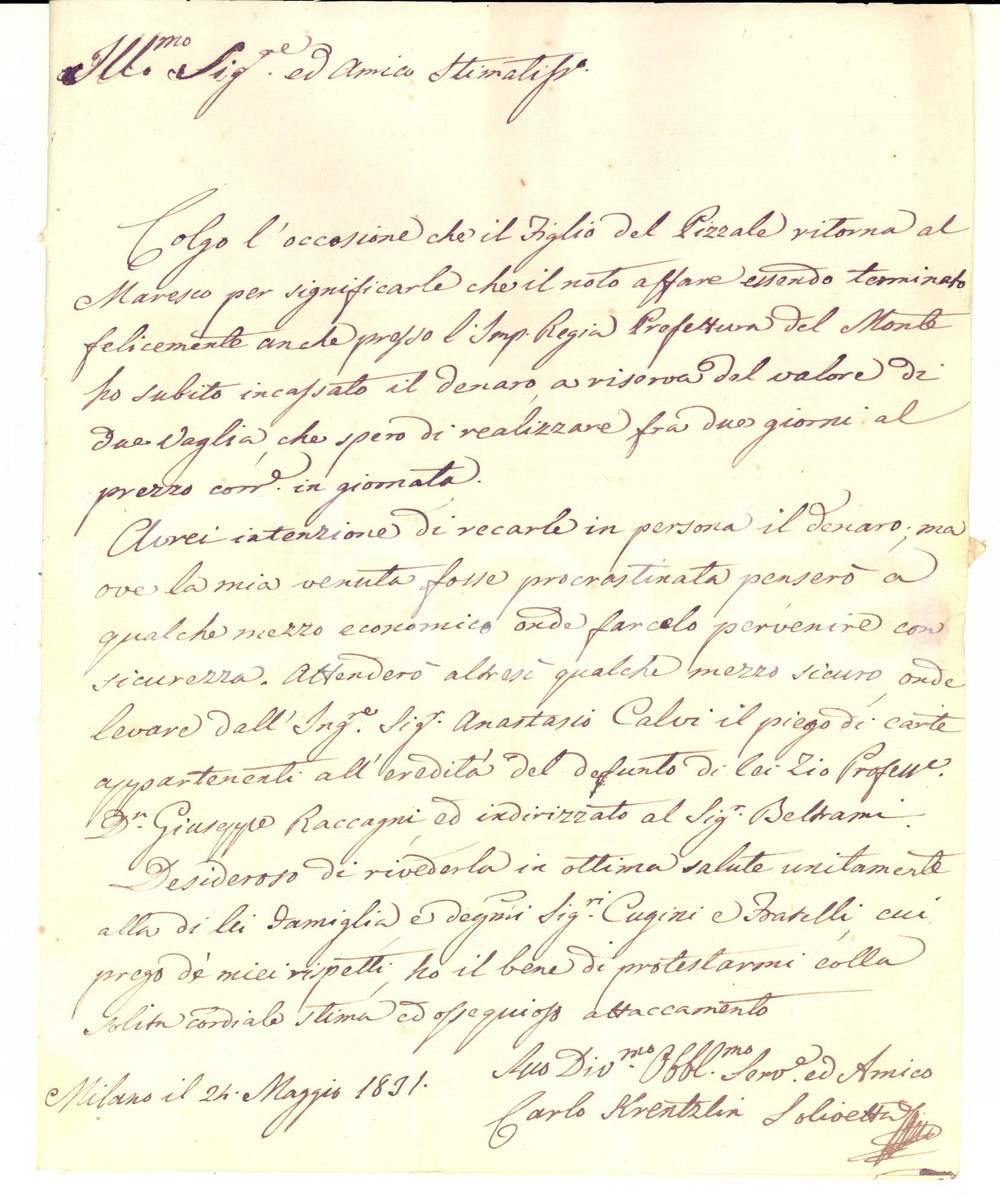 Ill.mo Sig.re ed Amico Stimatiss.o
Colgo l'occasione che il Figlio del Pizzale ritorna al
Maresco per significarle che il noto affare essendo terminato
felicemente anche presso l'Imp. Regia Prefettura del Monte
ho subito incassato il denaro, a riserva del valore di
due Vaglia, che spero di realizzare fra due giorni al
prezzo corr.e in giornata.
Avrei intenzione di recarle in persona il denaro; ma
ove la mia venuta fosse procrastinata penserò a
qualche mezzo economico onde farcelo pervenire con
sicurezza. Attenderò altresì qualche mezzo sicuro, onde
levare dall'Ing.e Sig.r Anastasio Calvi il piego di carte
appartenenti all'eredità del defunto di lei Zio Profess.e
D.n Giuseppe Raccagni ed indirizzato al Sig.r Beltrami.
Desideroso di rivederla in ottima salute unitamente
alla di lei Famiglia e degni Sig.ri Cugini e Fratelli, cui
prego de' miei rispetti, ho il bene di protestarmi colla
solita cordiale stima ed ossequioso attaccamento
Suo Div.mo Obbl.mo Serv.e ed Amico
Milano il 24. Maggio 1831.
Carlo Krentzlin Solivetti